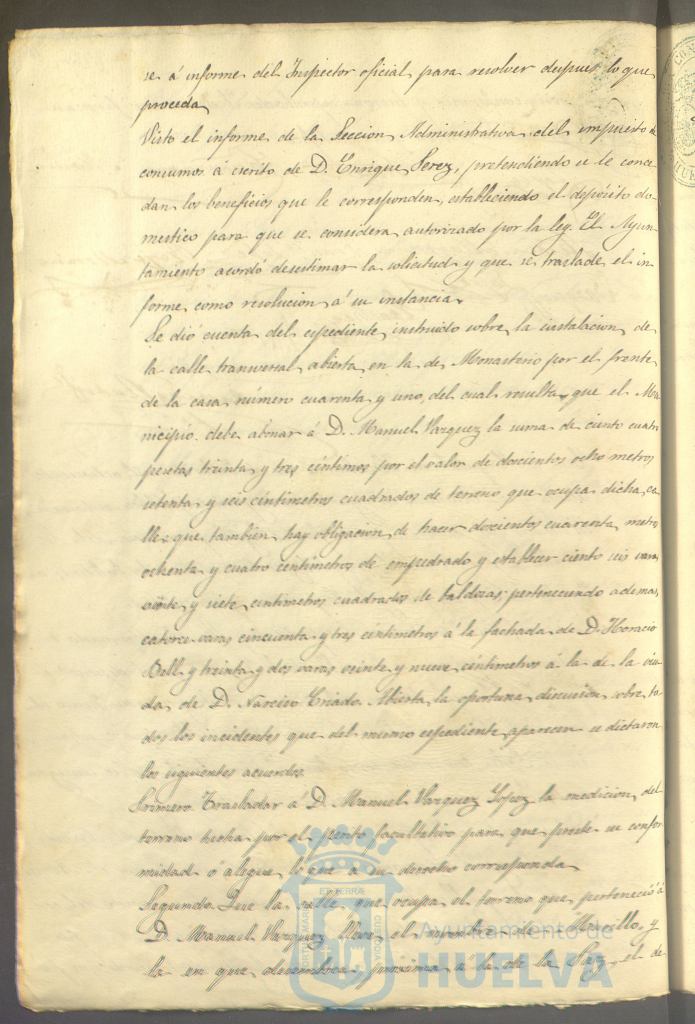 se á informe del Inspector oficial para resolver despues lo que
proceda
Visto el informe de la Seccion Administrativa del impuesto de
consumos á escrito de D. Enrique Perez, pretendiendo se le conce-
dan los beneficios que le corresponden, estableciendo el depósito do-
mestico para que se considera autorizado por la ley. El Ayun-
tamiento acordó desestimar la solicitud y que se traslade el in-
forme como resolucion á su instancia.
Se dió cuenta del espediente instruido sobre la instalacion de
la calle transversal abierta en la de Monasterio por el frente
de la casa número cuarenta y uno, del cual resulta que el Mu-
nicipio debe abonar á D. Manuel Vazquez la suma de ciento cuatro
pesetas treinta y tres céntimos por el valor de doscientos ocho metros
setenta y seis centimetros cuadrados de terreno que ocupa dicha ca-
lle; que tambien hay obligacion de hacer doscientos cuarenta metros
ochenta y cuatro centimetros de empedrado y establecer ciento seis varas
veinte y siete centimetros cuadrados de baldosas; perteneciendo ademas
catorce varas cincuenta y tres centimetros á la fachada de D. Horacio
Bell y treinta y dos varas veinte y nueve céntimetros á la de la viu-
da de D. Narciso Criado. Abierta la oportuna discusion sobre to-
dos los incidentes que del mismo espediente aparecen se dictaron
los siguientes acuerdos.
Primero Trasladar á D. Manuel Vazquez Lopez la medicion del
terreno hecha por el perito facultativo para que preste su confor-
midad ó alegue lo que a su derecho corresponda
Segundo. Que la calle que ocupa el terreno que perteneció á
D. Manuel Vazquez lleve el nombre de y
la en que desemboca, proxima á la de la Paz, el de
Ayuntamiento de
HUELVA